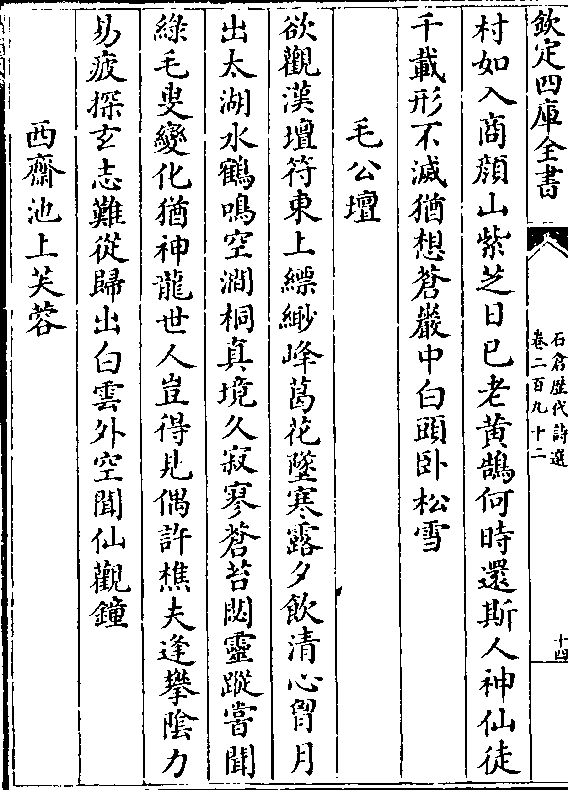 欽定四庫全書
石倉歴代詩選
卷二百九十二
十四
村如入商顔山紫芝日已老黄鵠何時還斯人神仙徒
千載形不滅猶想蒼巖中白頭卧松雪
毛公壇
欲觀漢壇符東上縹緲峰葛花墜寒露夕飲清心胷月
出太湖水鶴鳴空澗桐真境久寂寥蒼苔閟靈蹤嘗聞
綠毛叟變化猶神龍世人豈得見偶許樵夫逢攀陰力
易疲探玄志難從歸出白雲外空聞仙觀鐘
西齋池上芙蓉